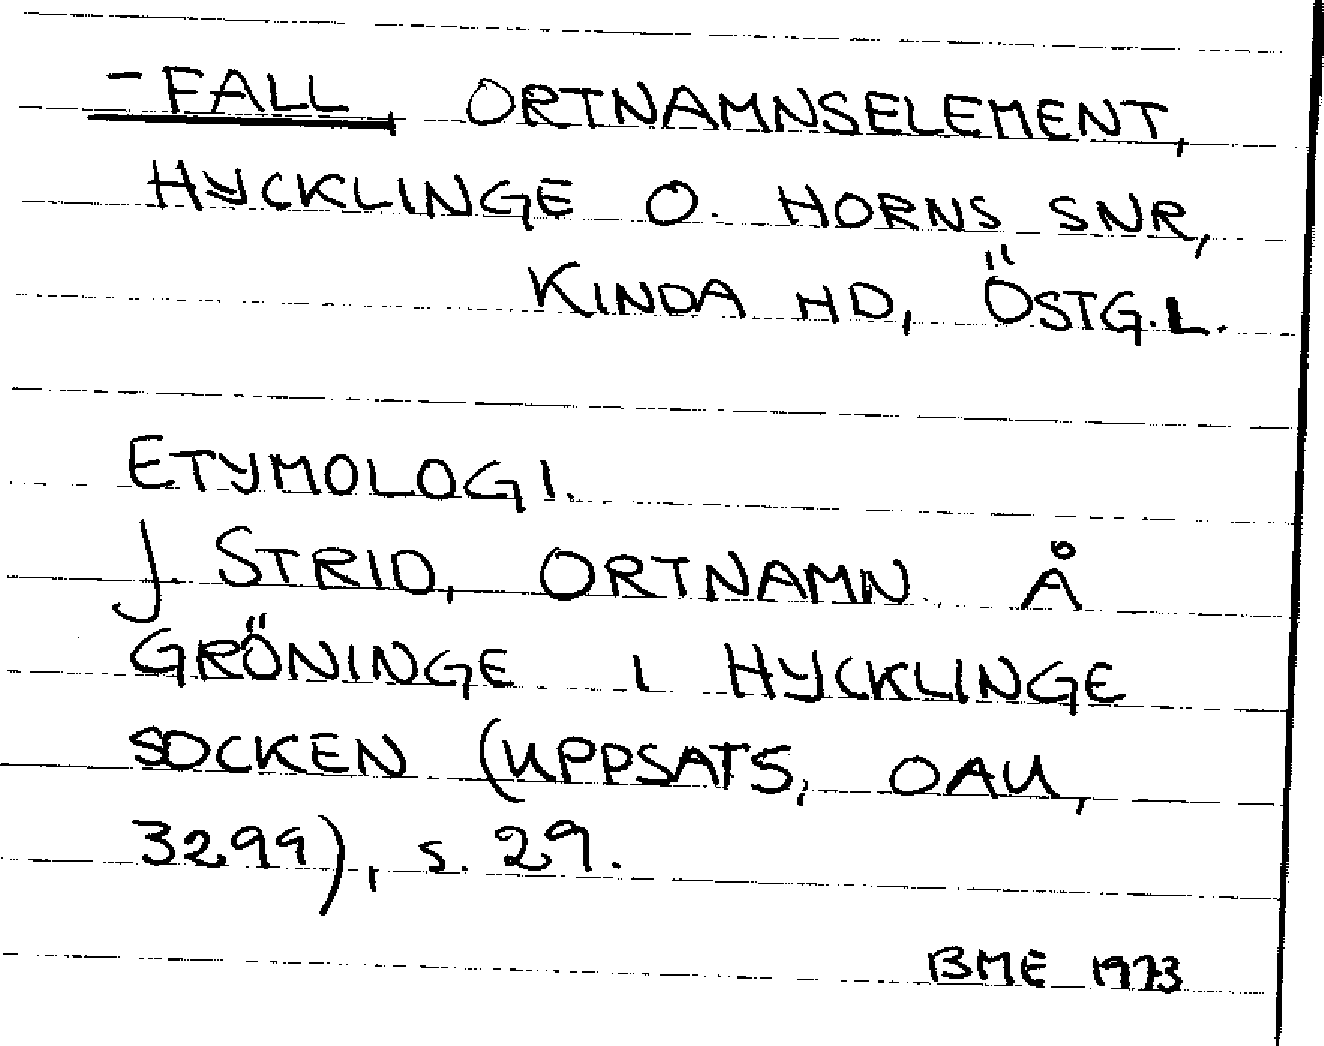 -FALL ORTNAMNSELEMENT,
HYCKLINGE O. HORNS SNR,
KINDA HD, ÖSTG.L.
ETYMOLOGI.
J. STRID, ORTNAMN Å
GRÖNINGE I HYCKLINGE
SOCKEN (UPPSATS, OAU,
3299), S. 29.
BME 1973